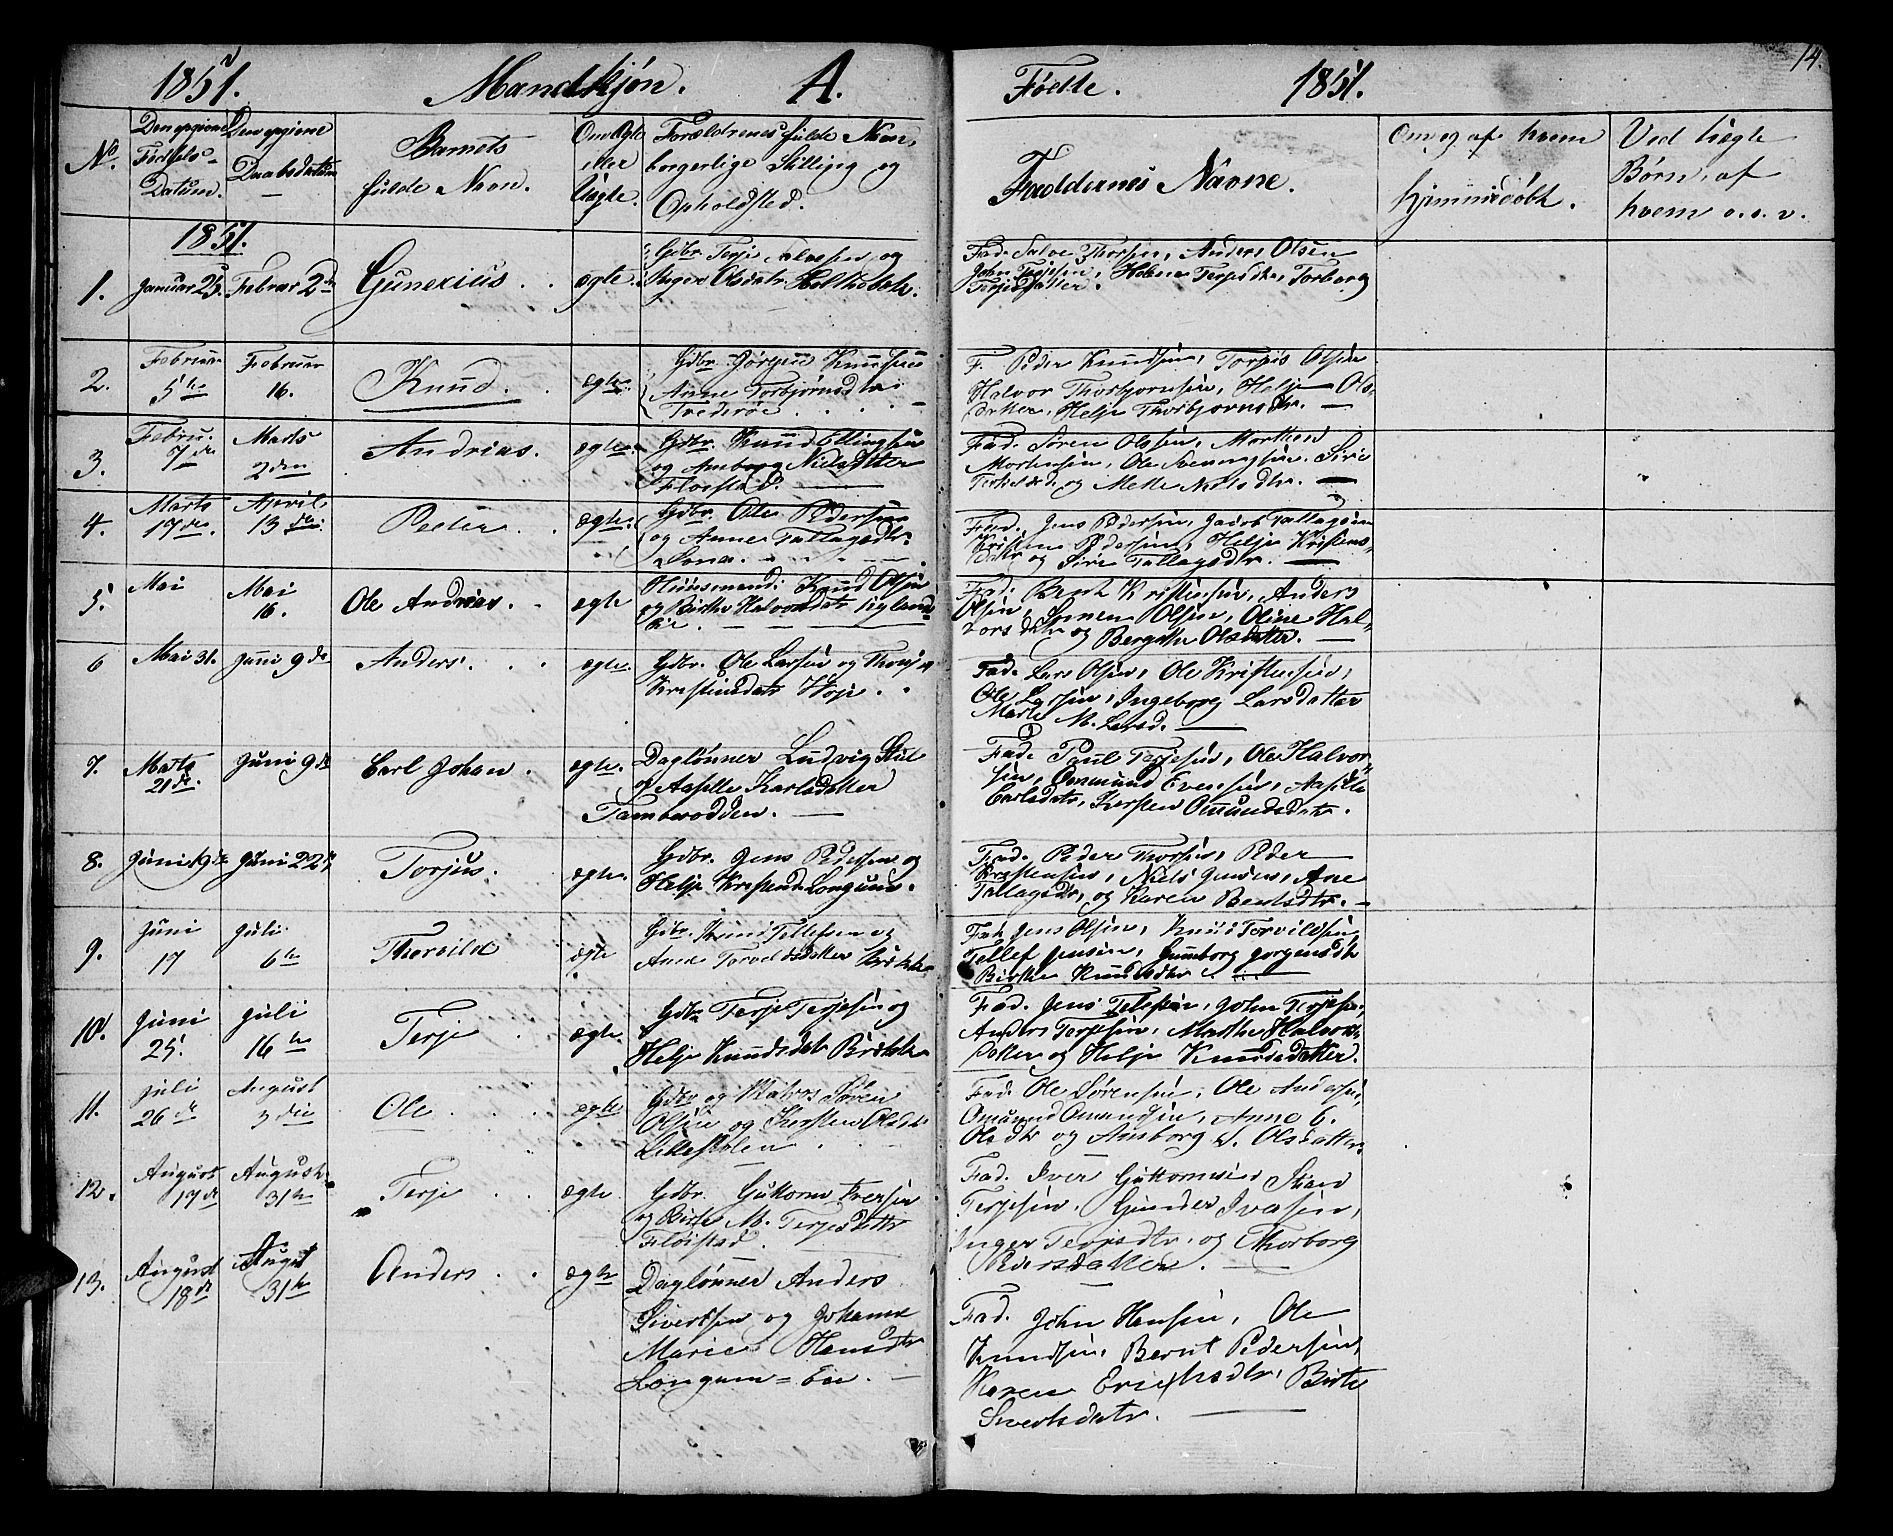 1851. Mandkjøn. A. Fødte. 1851. 14.
No. Den opgivne Fødsels-Datum. Den opgivne Daabsdatum Barnets fulde Navn. Om ægte eller Uægte. Forældrenes fulde Navn, borgerlige Stilling og Opholdsted. Faddernes Navne. Om og af hvem hjemmedøbt. Ved Uægte Børn, af hvem o.s.v.
1851.
1. Januar 25. Februar 2den Gunerius. ægte. Gdbr. Terje Salvesen og
Inger Olsdatr.
Fad. Salve Thorsen, Anders Olsen
John Terjesen, Helene Terjesdtr, Torborg
Terjesdatter.
2. Februar 5te Februar 16. Knud. ægte. Gdbr. Jørgen Knudsen
Anne Torbjørnsdtr
Trederøe
F. Peder Knudsen, Torjus Olsen
Halvor Thorbjørnsen, Helje Ols-
datter, Helje Thorbjørnsdtr.
3. Febru. 7de Marts 2den Andrias. ægte. Gdbr. Knud Ellingsen
og Amborg Nielsdatter
Fløistad.
Fad. Søren Olsen, Morthen
Mortensen, Ole Svenungsen, Siri
og Mette Nielsdtr.
4. Marts 17de. April 13de. Peeter. ægte. Gdbr. Ole Pedersen
og Anne Tallagsdtr.
Fad. Jens Pedersen, Jacob Tallagsen
Kristen Pedersen, Helje Kristens-
dtr og Siri Tallagsdtr.
5. Mai Mai 16. Ole Andrias. ægte Huusmand: Knud Olsen
og Birthe Halvorsdatr
Fad. Bent Kristensen, Anders
Olsen, Olsen, Oline Hal-
vorsdtr og Bergithe Olsdatter.
6 Mai 31. Juni 9de Anders. ægte. Gdbr. Ole Larsen og
Kristensdatr
Fad. Lars Olsen, Ole Kristensen,
Ole Larsen, Ingeborg Larsdatter
Marte M. Larsd.
7. Marts 21de. Juni 9de Carl Johan. ægte. Daglønner Ludvig
og Aaselle Karlsdatter
Tamberodden.
Fad. Paul Terjesen, Ole Halvor-
sen, Ommund Evensen,
Carlsdatr, Kersten Omundsdatr.
8. Juni 19de Juni 22. Torjus. ægte. Gdbr. Jens Pedersen og
Helje Kristensd. Longum.
Fad. Peder Thorsen, Peder
Kristensen, Niels Jensen, Ane
Tallagsdtr, og Karen Bentsdtr.
9. Juni 17 Juli 6te Thorvild ægte Gdbr. Tellefsen og
Ane
Fad. Jens Olsen, Knud Torvildsen,
Tellef Jensen, Gunborg Jorgensdtr
Birthe Knudsdtr.
10. Juni 25. Juli 16te Terje ægte. Gdbr Terje Terjesen og
Helje Knudsdatr
Fad. Jens John Terjesen,
Anders Terjesen, Marthe Halvors-
datter og Helje Knudsdatter.
11. Juli 26de August 3die Ole ægte. Gdbr og Matros Søren
Olsen og Kersten Olsdtr
Fad. Ole Sørensen, Ole Andersen,
Omund Omundsen, Anne G.
Olsdtr og Amborg Olsdatter.
12. August 17de August 31te Terje ægte Gdbr. Guttorm Iversen
og Birte M. Terjesdattr
Fløistad.
Fad. Iver Guttormsen
Terjesen, Gunder Ivesen,
Inger Terjesdtr, og Thorborg
Pedersdatter.
13. August 18de August 31te Anders ægte Dagløner Anders
Sivertsen og Johanne
Marie Hansdtr
Longum=Eie.
Fad. John Hansen, Ole
Knudsen, Bernt Pedersen,
Karen Erichsdtr, Birte
Siverksdatr.